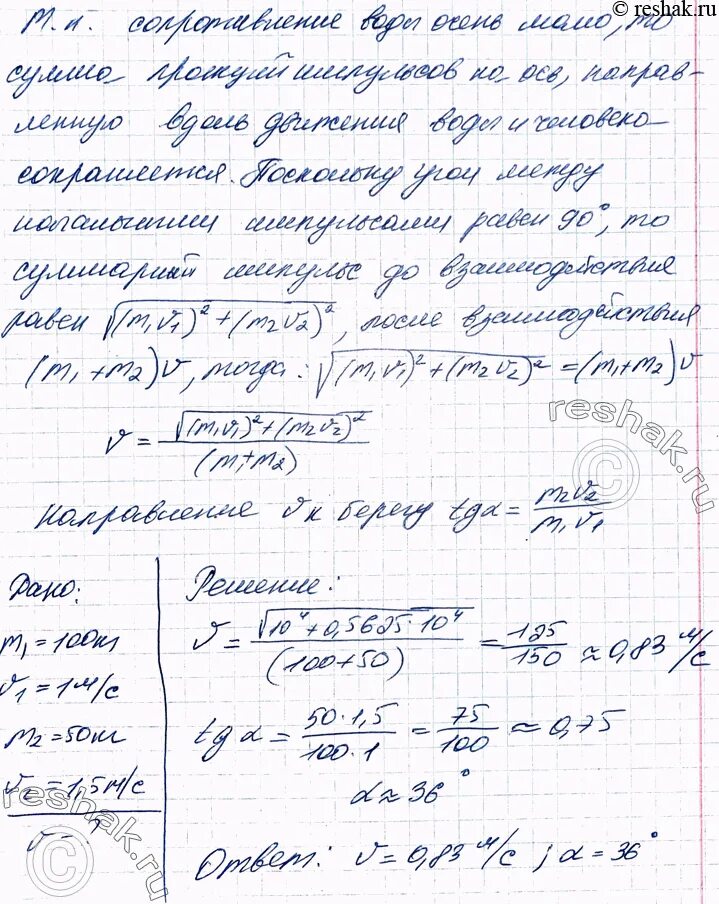 © reshak.ru
М.к. сопротивление воды очень мало, то
сумма проекций импульсов на ось, направ-
ленную вдоль движения воды и человека
сохраняется. Поскольку угол между
начальными импульсами равен 90°, то
суммарный импульс до взаимодействия
равен √((m₁v₁)² + (m₂v₂)²), после взаимодействия
(m₁ + m₂)v, тогда: √((m₁v₁)² + (m₂v₂)²) = (m₁+m₂)v
v = √((m₁v₁)² + (m₂v₂)²) / (m₁+m₂)
reshak.ru
©
Направление v к берегу tgα = m₂v₂ / m₁v₁
Дано:
m₁ = 100кг
v₁ = 1м/с
m₂ = 50кг
v₂ = 1,5м/с
v - ?
Решение:
v = √(10⁴ + 0,5625·10⁴) / (100+50) = 125/150 ≈ 0,83 м/с
tg α = 50·1,5 / 100·1 = 75/100 ≈ 0,75
α ≈ 36°
Ответ: v = 0,83 м/с ; α = 36°
reshak.ru
©
reshak.ru
©